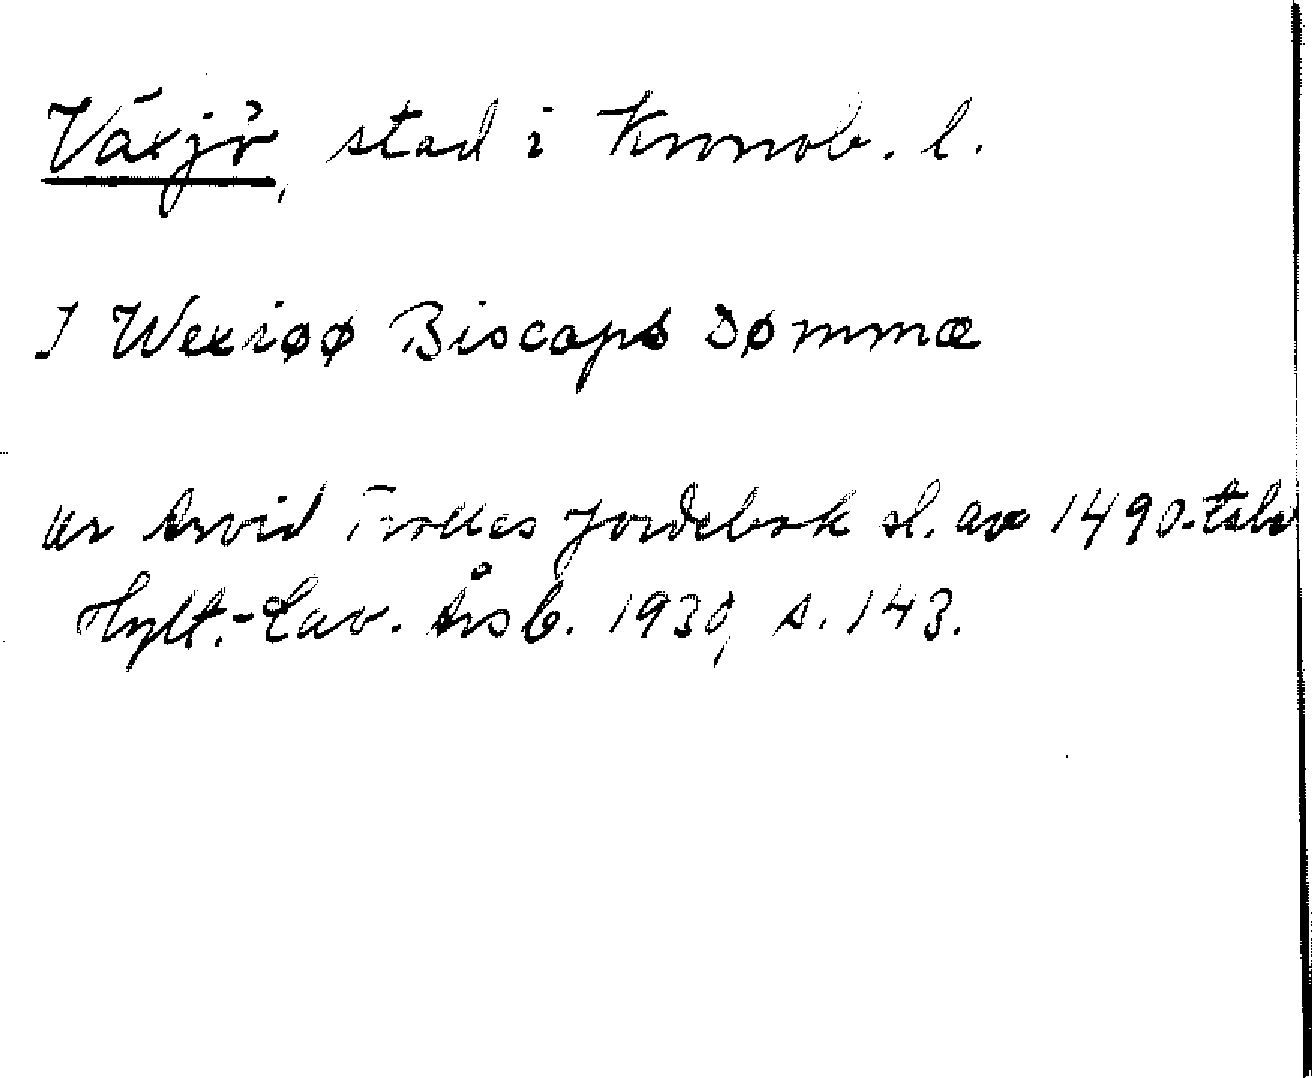 Växjö, stad i Kronob. l.
I Wexiøø Biscaps Dømmæ
ur Arvid Trolles Jordebok sl. av 1490-talet
Hylt.-Cav. Årsb. 1930, s. 143.